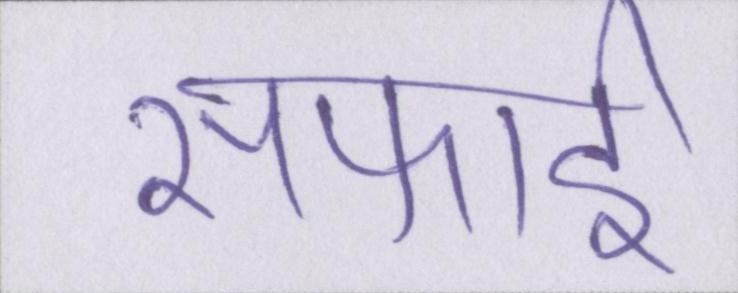 सफाई